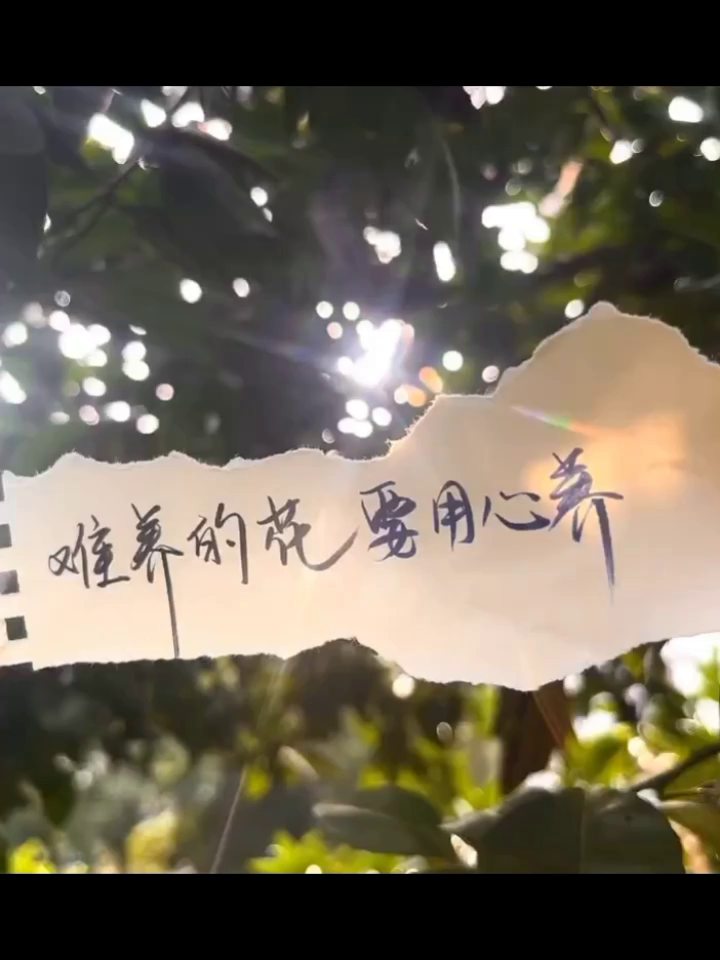 难养的花要用心养